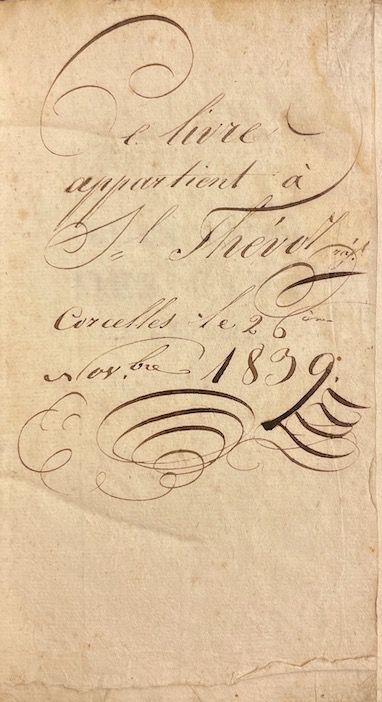 Ce livre
appartient à
Sl Thévoz
Corcelles le 26ème
Nov.bre 1839.